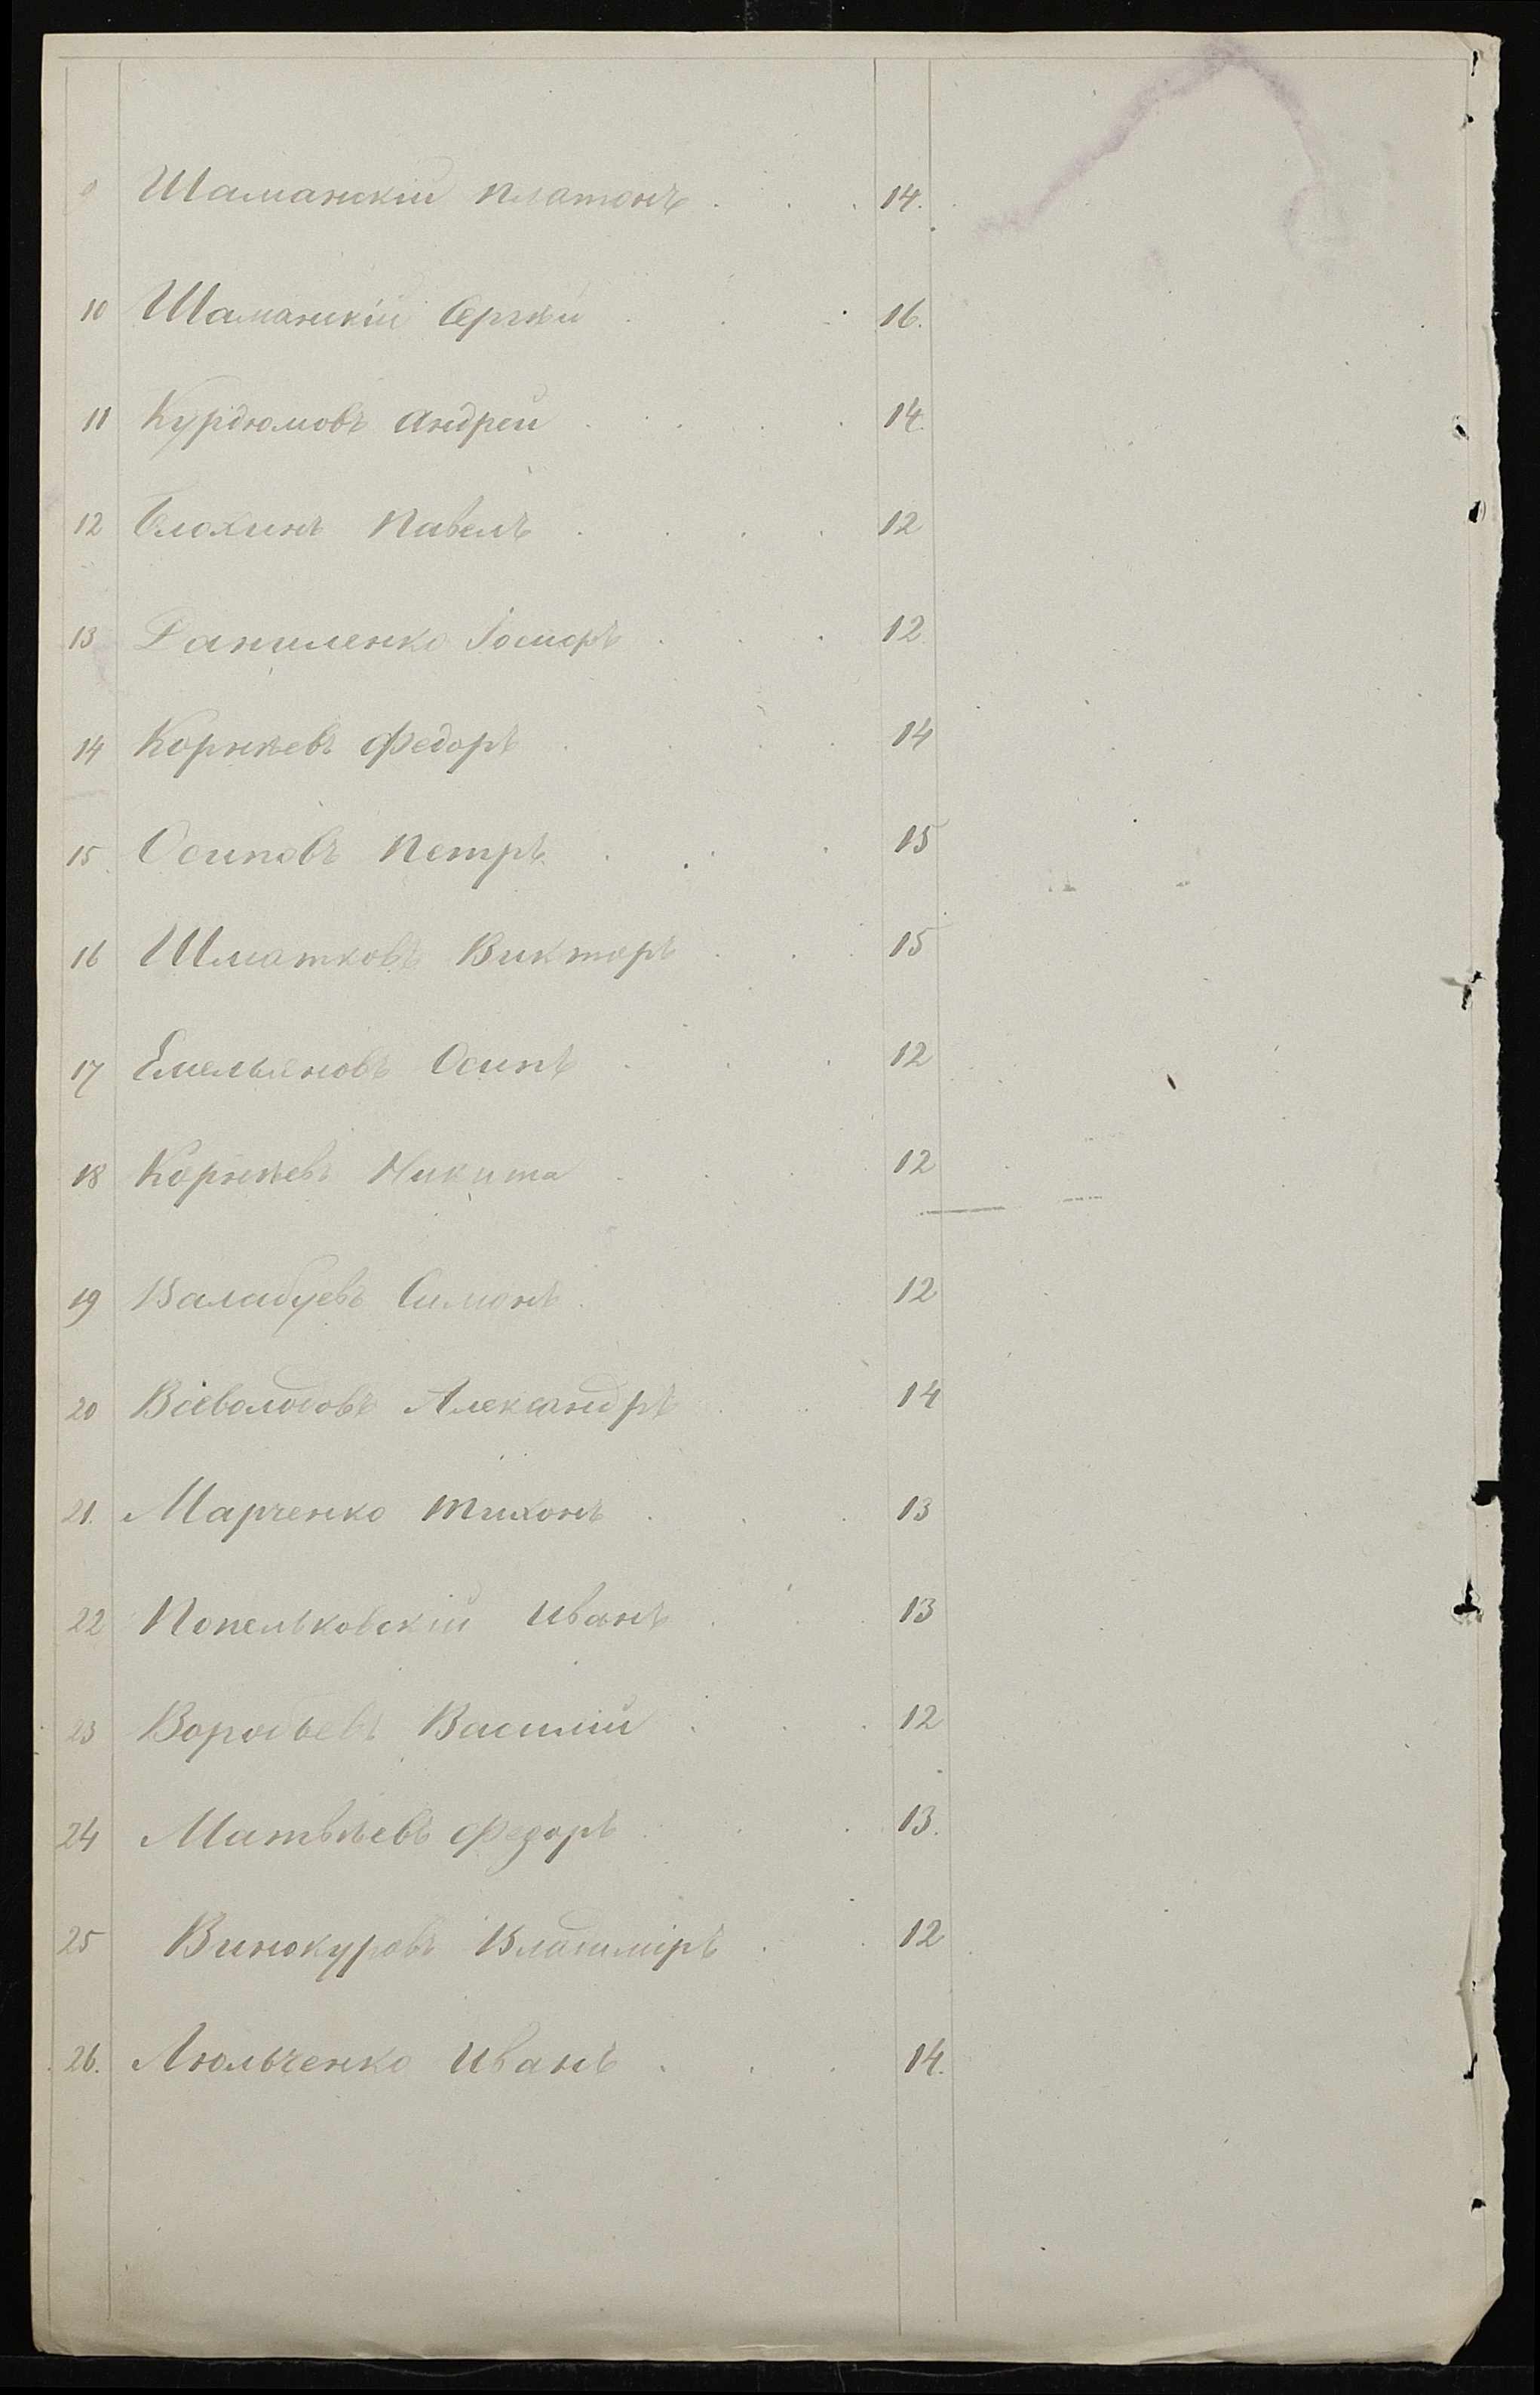 9 Шаманскій Платонъ . . . 14.
10 Шаманскій Сергѣй . . . 16.
11 Курдюмовъ Андрей . . . . 14.
12 Блохинъ Павелъ . . . . 12
13 Даниленко . . . 12.
14 Корнѣевъ Федоръ . . . . 14
15. Осиповъ Петръ . . . 15
16 Шматковъ Викторъ . . . 15
17 Емельяновъ Осипъ . . . 12
18 Корнѣевъ Никита . . . 12
19 Валабуевъ Симонъ . . 12
20 Всеволодовъ Александръ . . 14
21. Марченко Тихонъ . . . 13
22 Попельковскій Иванъ . . 13
23 Воробьевъ Василій . . . 12
24 Матвѣевъ Федоръ . . . 13.
25 Винокуровъ Владиміръ . . 12
26. Люльченко Иванъ . . . 14.